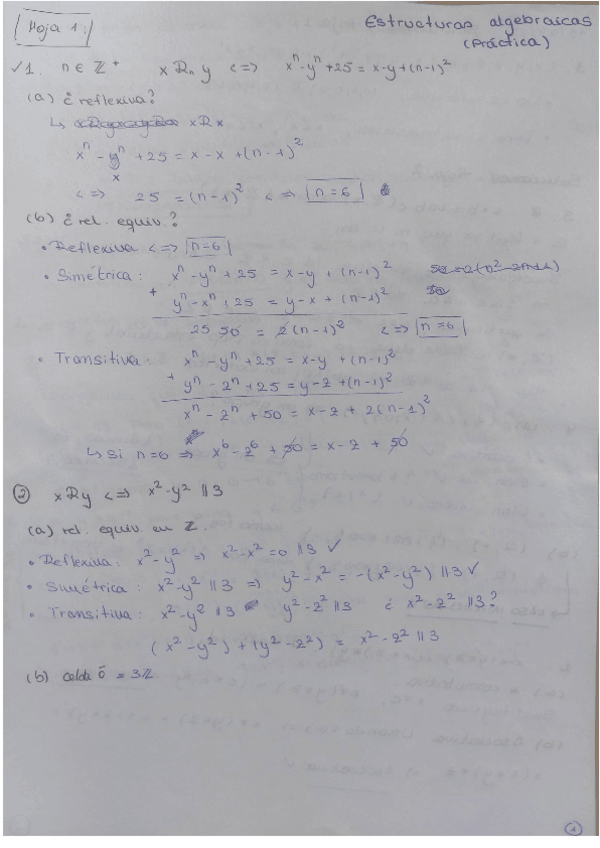 Hoja 1:
Estructuras algebraicas
(Práctica)
✓1. n ∈ Z⁺ x Rₙ y <=> xⁿ-yⁿ+25 = x-y+(n-1)²
(a) ¿reflexiva?
↳ x R x
xⁿ - yⁿ + 25 = x - x + (n-1)²
x
<=> 25 = (n-1)² <=> n = 6
(b) ¿rel. equiv.?
• Reflexiva <=> n=6
• Simétrica: xⁿ-yⁿ+25 = x-y + (n-1)²
+ yⁿ-xⁿ+25 = y-x + (n-1)²
25 50 = 2(n-1)² <=> n=6
• Transitiva: xⁿ-yⁿ+25 = x-y + (n-1)²
+ yⁿ-zⁿ+25 = y-z+(n-1)²
xⁿ-zⁿ+50 = x-z + 2(n-1)²
↳ Si n=6 => x⁶-z⁶+50 = x-z + 50
② xRy <=> x²-y² || 3
(a) rel. equiv. en Z.
• Reflexiva: x²-y² => x²-x²=0 || 3 ✓
• Simétrica: x²-y² || 3 => y²-x² = -(x²-y²) || 3 ✓
• Transitiva: x²-y² || 3 y²-z² || 3 ¿ x²-z² || 3?
(x²-y²) + (y²-z²) = x²-z² || 3
(b) celda ō = 3Z
1